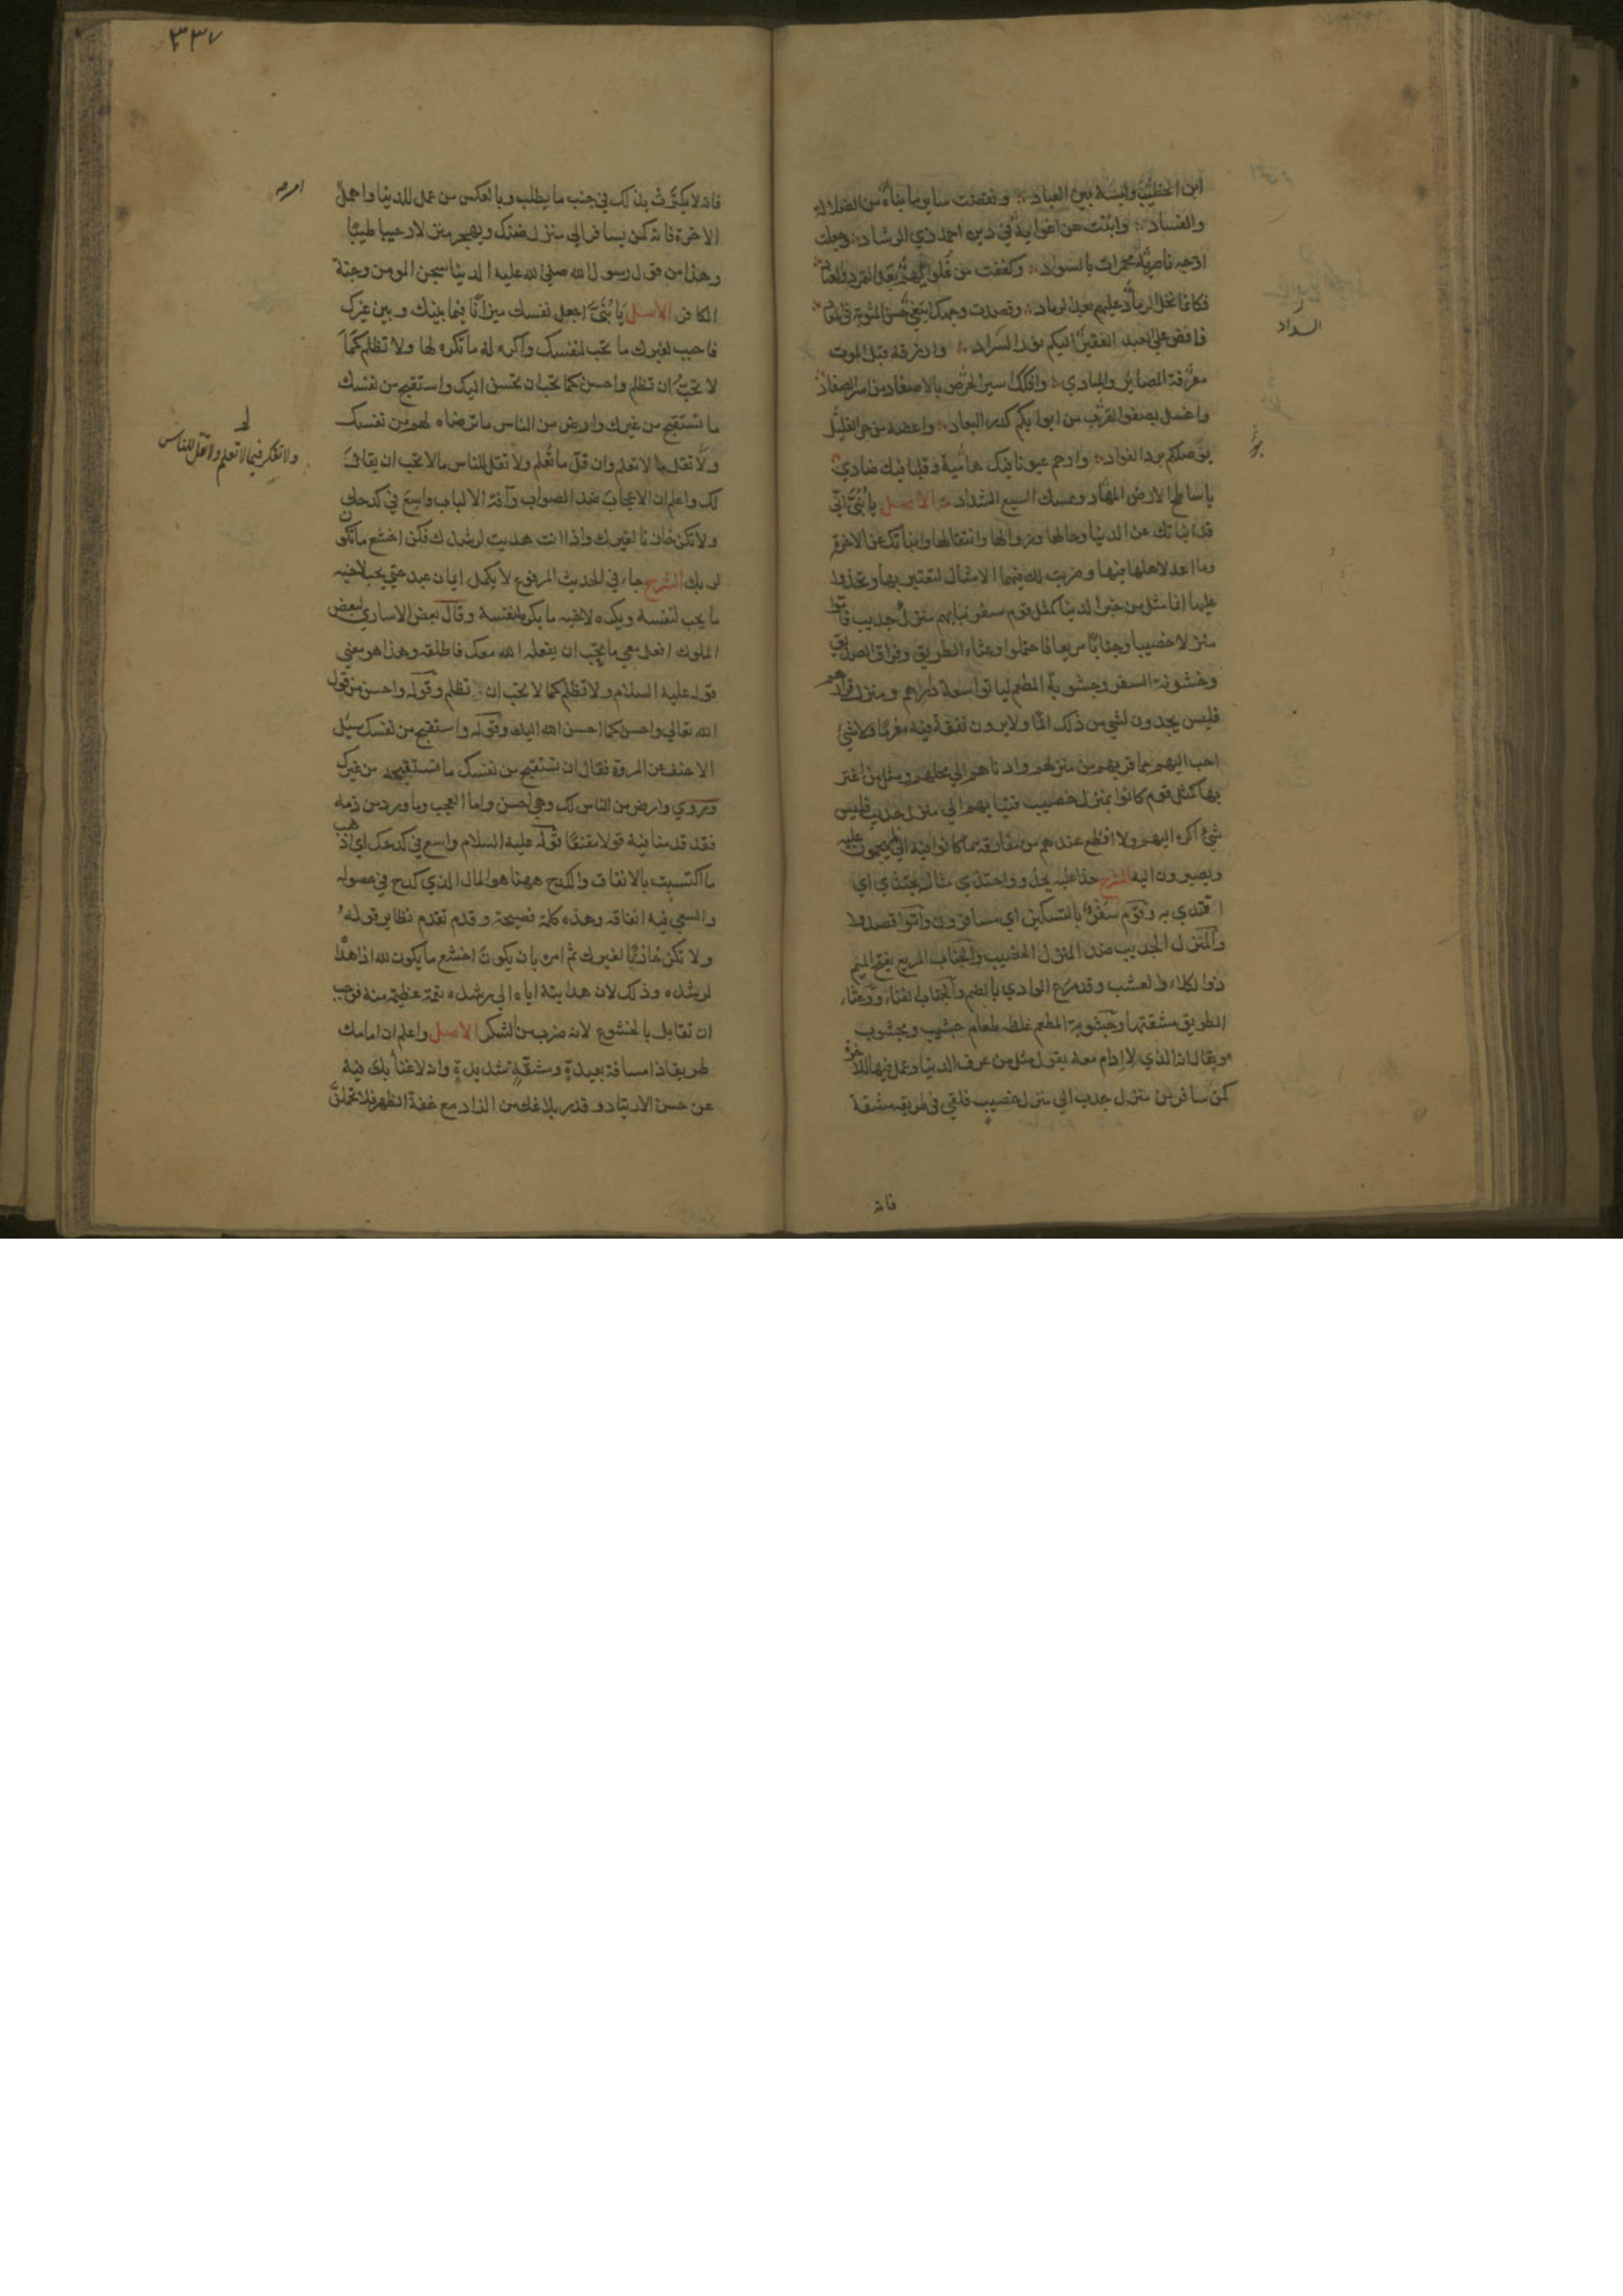 ابن الخطيب ولبسه بين العباد ونقضت ساير ما بناه من الضلالة
والفساد وابنت عن اغوايه في دين احمد ذي الرشاد وجعلت
اوجه ناصريه محمرات بالسواد وكففت من غلوايهم بعد التمرد والعناد
فكانما نخل الرماد عليهم بعد الرماد وقصدت وجهك ابتغي حسن المثوبة في المعاد
فافض على العبد الفقير اليكم نور السداد وارزقه قبل الموت
معرفة المصاير والمبادي وافكك اسير الحرص بالاصفاد من اسر الصفاد
واغسل بصفو القرب من ابوابكم كدر البعاد واعضه من حر الغليل
بوصلكم برد الفواد وارحم عيونا فيك هامية وقلبا فيك صادي
يا ساطح الارض المهاد وممسك السبع الشداد الاصل يا بني اني
قد انباتك عن الدنيا وحالها وزوالها وانتقالها وانباتك عن الاخرة
وما اعد لاهلها فيها وضربت لك فيهما الامثال لتعتبر بها وتحذو
عليها انما مثل من خبر الدنيا كمثل قوم سفر نبا بهم منزل جديب فاموا
منزلا خصيبا وجنابا مريعا فاحتملوا وعثاء الطريق وفراق الصديق
وخشونة السفر وجشوبة المطعم لياتوا سعة دارهم ومنزل قرارهم
فليس يجدون لشي من ذلك المًا ولا يرون نفقة فيه مغرمًا فلا شي
احب اليهم مما قربهم من منزلهم وادناهم الي محلهم ومثل من اغتر
بها كمثل قوم كانوا بمنزل خصيب فنبا بهم الي منزل جديب فليس
شي اكره اليهم ولا افظع عندهم من مفارقة ما كانوا فيه الي ما يهجمون عليه
ويصيرون اليه الشرح حذا عليه يحذو واحتذي مثاله يحتذي اي
اقتدي به وقوم سفر بالتسكين اي مسافرون واموا قصدوا
والمنزل الجديب ضد المنزل الخصيب والجناب المريع بفتح الميم
ذو الكلاء والعشب وقد مرع الوادي بالضم والجناب الفناء ووعثاء
الطريق مشقتها وجشوبة المطعم غلظه طعام جشيب ومجشوب
ويقال انه الذي لا ادام معه يقول مثل من عرف الدنيا وعمل فيها للاخرة
كمن سافر من منزل جدب الي منزل خصيب فلقي في طريقه مشقة
السداد
فانه
٣٣٧
فانه لا يكترث بذلك في جنب ما يطلب وبالعكس من عمل للدنيا واهمل
امر
الاخرة فانه كمن يسافر الي منزل ضنك ويهجر منزلا رحيبا طيبًا
وهذا من قول رسول الله صلي الله عليه الدنيا سجن المومن وجنة
الكافر الاصل يا بني اجعل نفسك ميزانًا فيما بينك وبين غيرك
فاحبب لغيرك ما تحب لنفسك واكره له ما تكره لها ولا تظلم كما
لا تحب ان تظلم واحسن كما تحب ان يحسن اليك واستقبح من نفسك
ما تستقبح من غيرك وارض من الناس ما ترضاه لهم من نفسك
ولا تقل ما لا تعلم وان قل ما تعلم ولا تقل للناس ما لا تحب ان يقال
ولا تفكر فيما لا تعلم ولا تقل للناس
لك واعلم ان الاعجاب ضد الصواب وآفة الالباب واسع في كدحك
ولا تكن خازنا لغيرك واذا انت هديت لرشدك فكن اخشع ما تكون
لربك الشرح جاء في الحديث المرفوع لا يكمل ايمان عبد حتي يحب لاخيه
ما يحب لنفسه ويكره لاخيه ما يكره لنفسه وقال بعض الاساري لبعض
الملوك افعل معي ما تحب ان يفعله الله معك فاطلقه وهذا هو معني
قوله عليه السلام ولا تظلم كما لا تحب ان تظلم وقوله واحسن من قول
الله تعالي واحسن كما احسن الله اليك وقوله واستقبح من نفسك سيل
الاحنف عن المروة فقال ان تستقبح من نفسك ما تستقبحه من غيرك
وروي وارض من الناس لك وهي احسن واما العجب وما ورد من ذمه
فقد قدمنا فيه قولا مقنعًا قوله عليه السلام واسع في كدحك اي اذهب
ما اكتسبت بالانفاق والكدح ههنا هو المال الذي كدح في حصوله
والسعي فيه انفاقه وهذه كلمة فصيحة وقد تقدم نظاير قوله
ولا تكن خازنًا لغيرك ثم امره بان يكون اخشع ما يكون لله اذا هداه
لرشده وذلك لان هدايته اياه الي رشده نعمة عظيمة منه فوجب
ان تقابل بالخشوع لانه ضرب من الشكر الاصل واعلم ان امامك
طريقا ذا مسافة بعيدة ومشقة شديدة وانه لا غنا بك فيه
عن حسن الارتياد وقدر بلاغك من الزاد مع خفة الظهر فلا تحملن